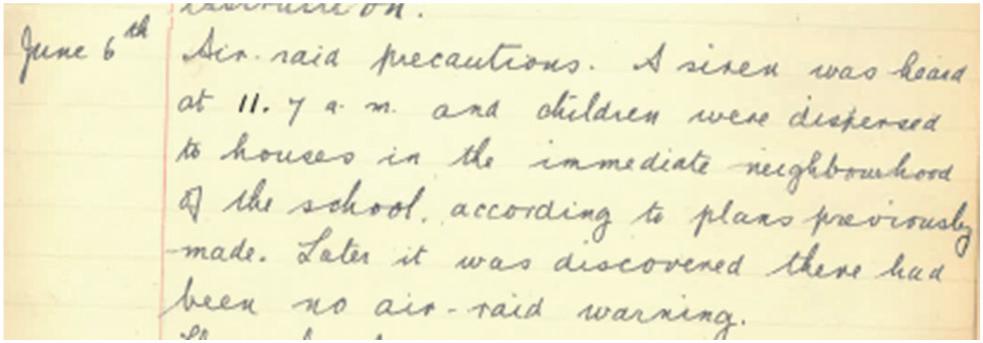 June 6th
Air-raid precautions. A siren was heard
at 11.7 a.m. and children were dispersed
to houses in the immediate neighbourhood
of the school, according to plans previously
made. Later it was discovered there had
been no air-raid warning.